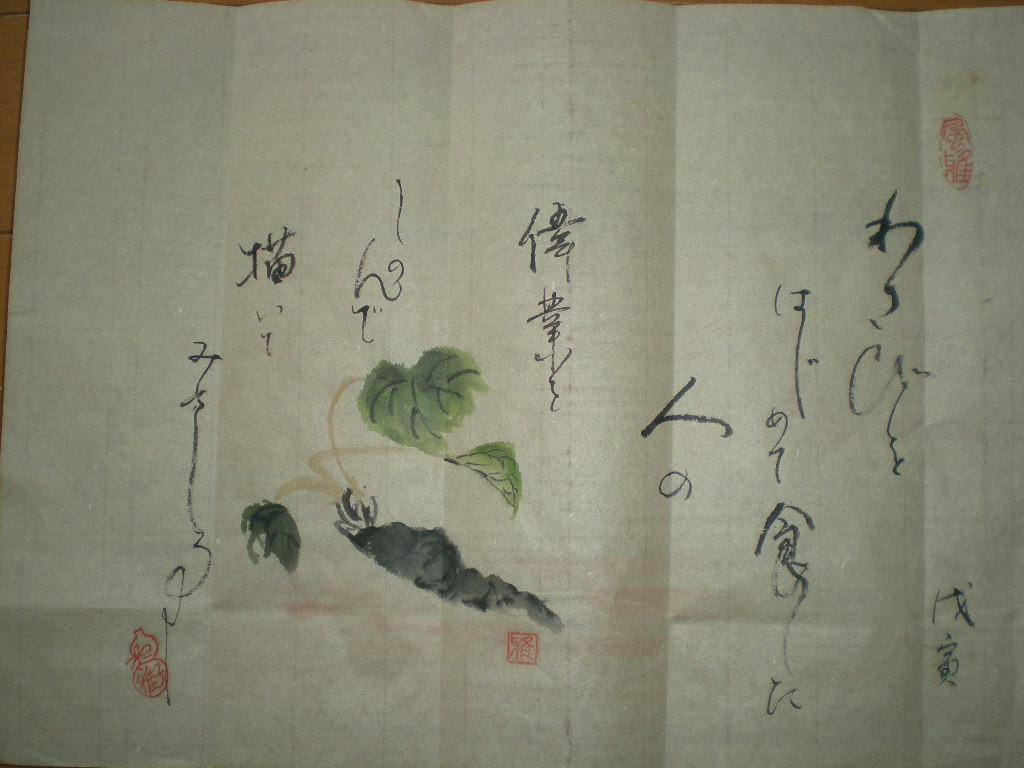 風雅
戊寅
わさびを
はじめて食した
人の
偉業を
しのんで
描いて
雅